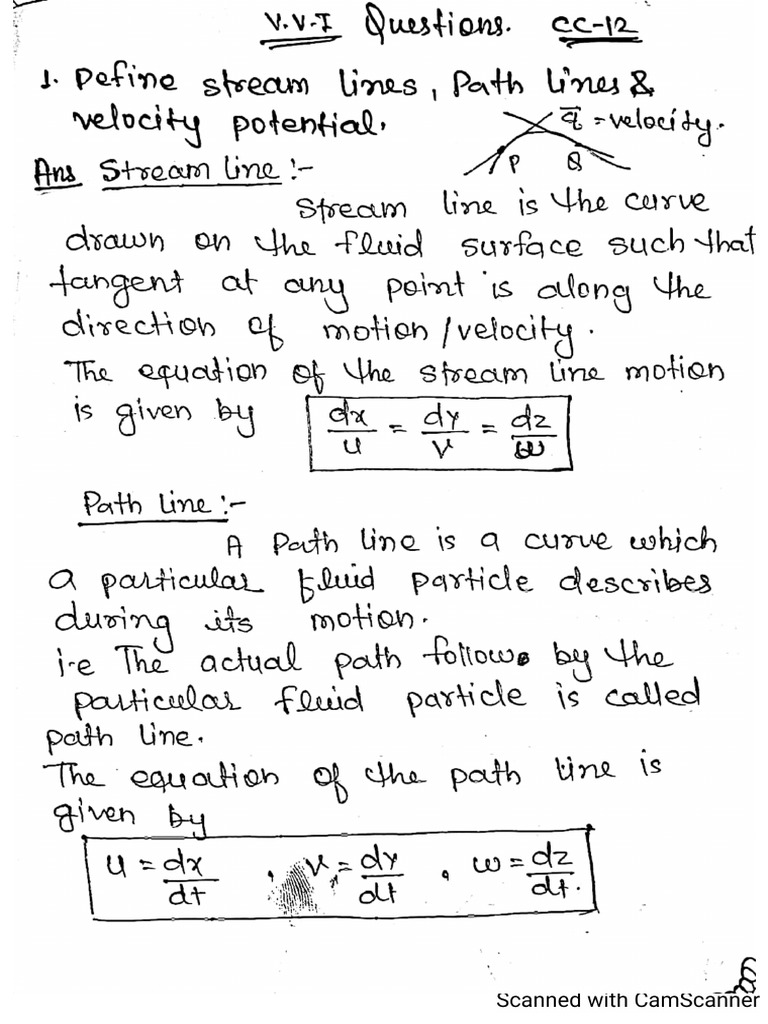 V.V.I Questions. CC-12
1. Define stream lines, Path lines &
velocity potential.
q̅ = velocity.
P Q
Ans Stream line :-
Stream line is the curve
drawn on the fluid surface such that
tangent at any point is along the
direction of motion/velocity.
The equation of the stream line motion
is given by dx/u = dy/v = dz/w
Path line :-
A Path line is a curve which
a particular fluid particle describes
during its motion.
i.e The actual path follow by the
particular fluid particle is called
path line.
The equation of the path line is
given by
u = dx/dt , v = dy/dt , w = dz/dt.
Scanned with CamScanner